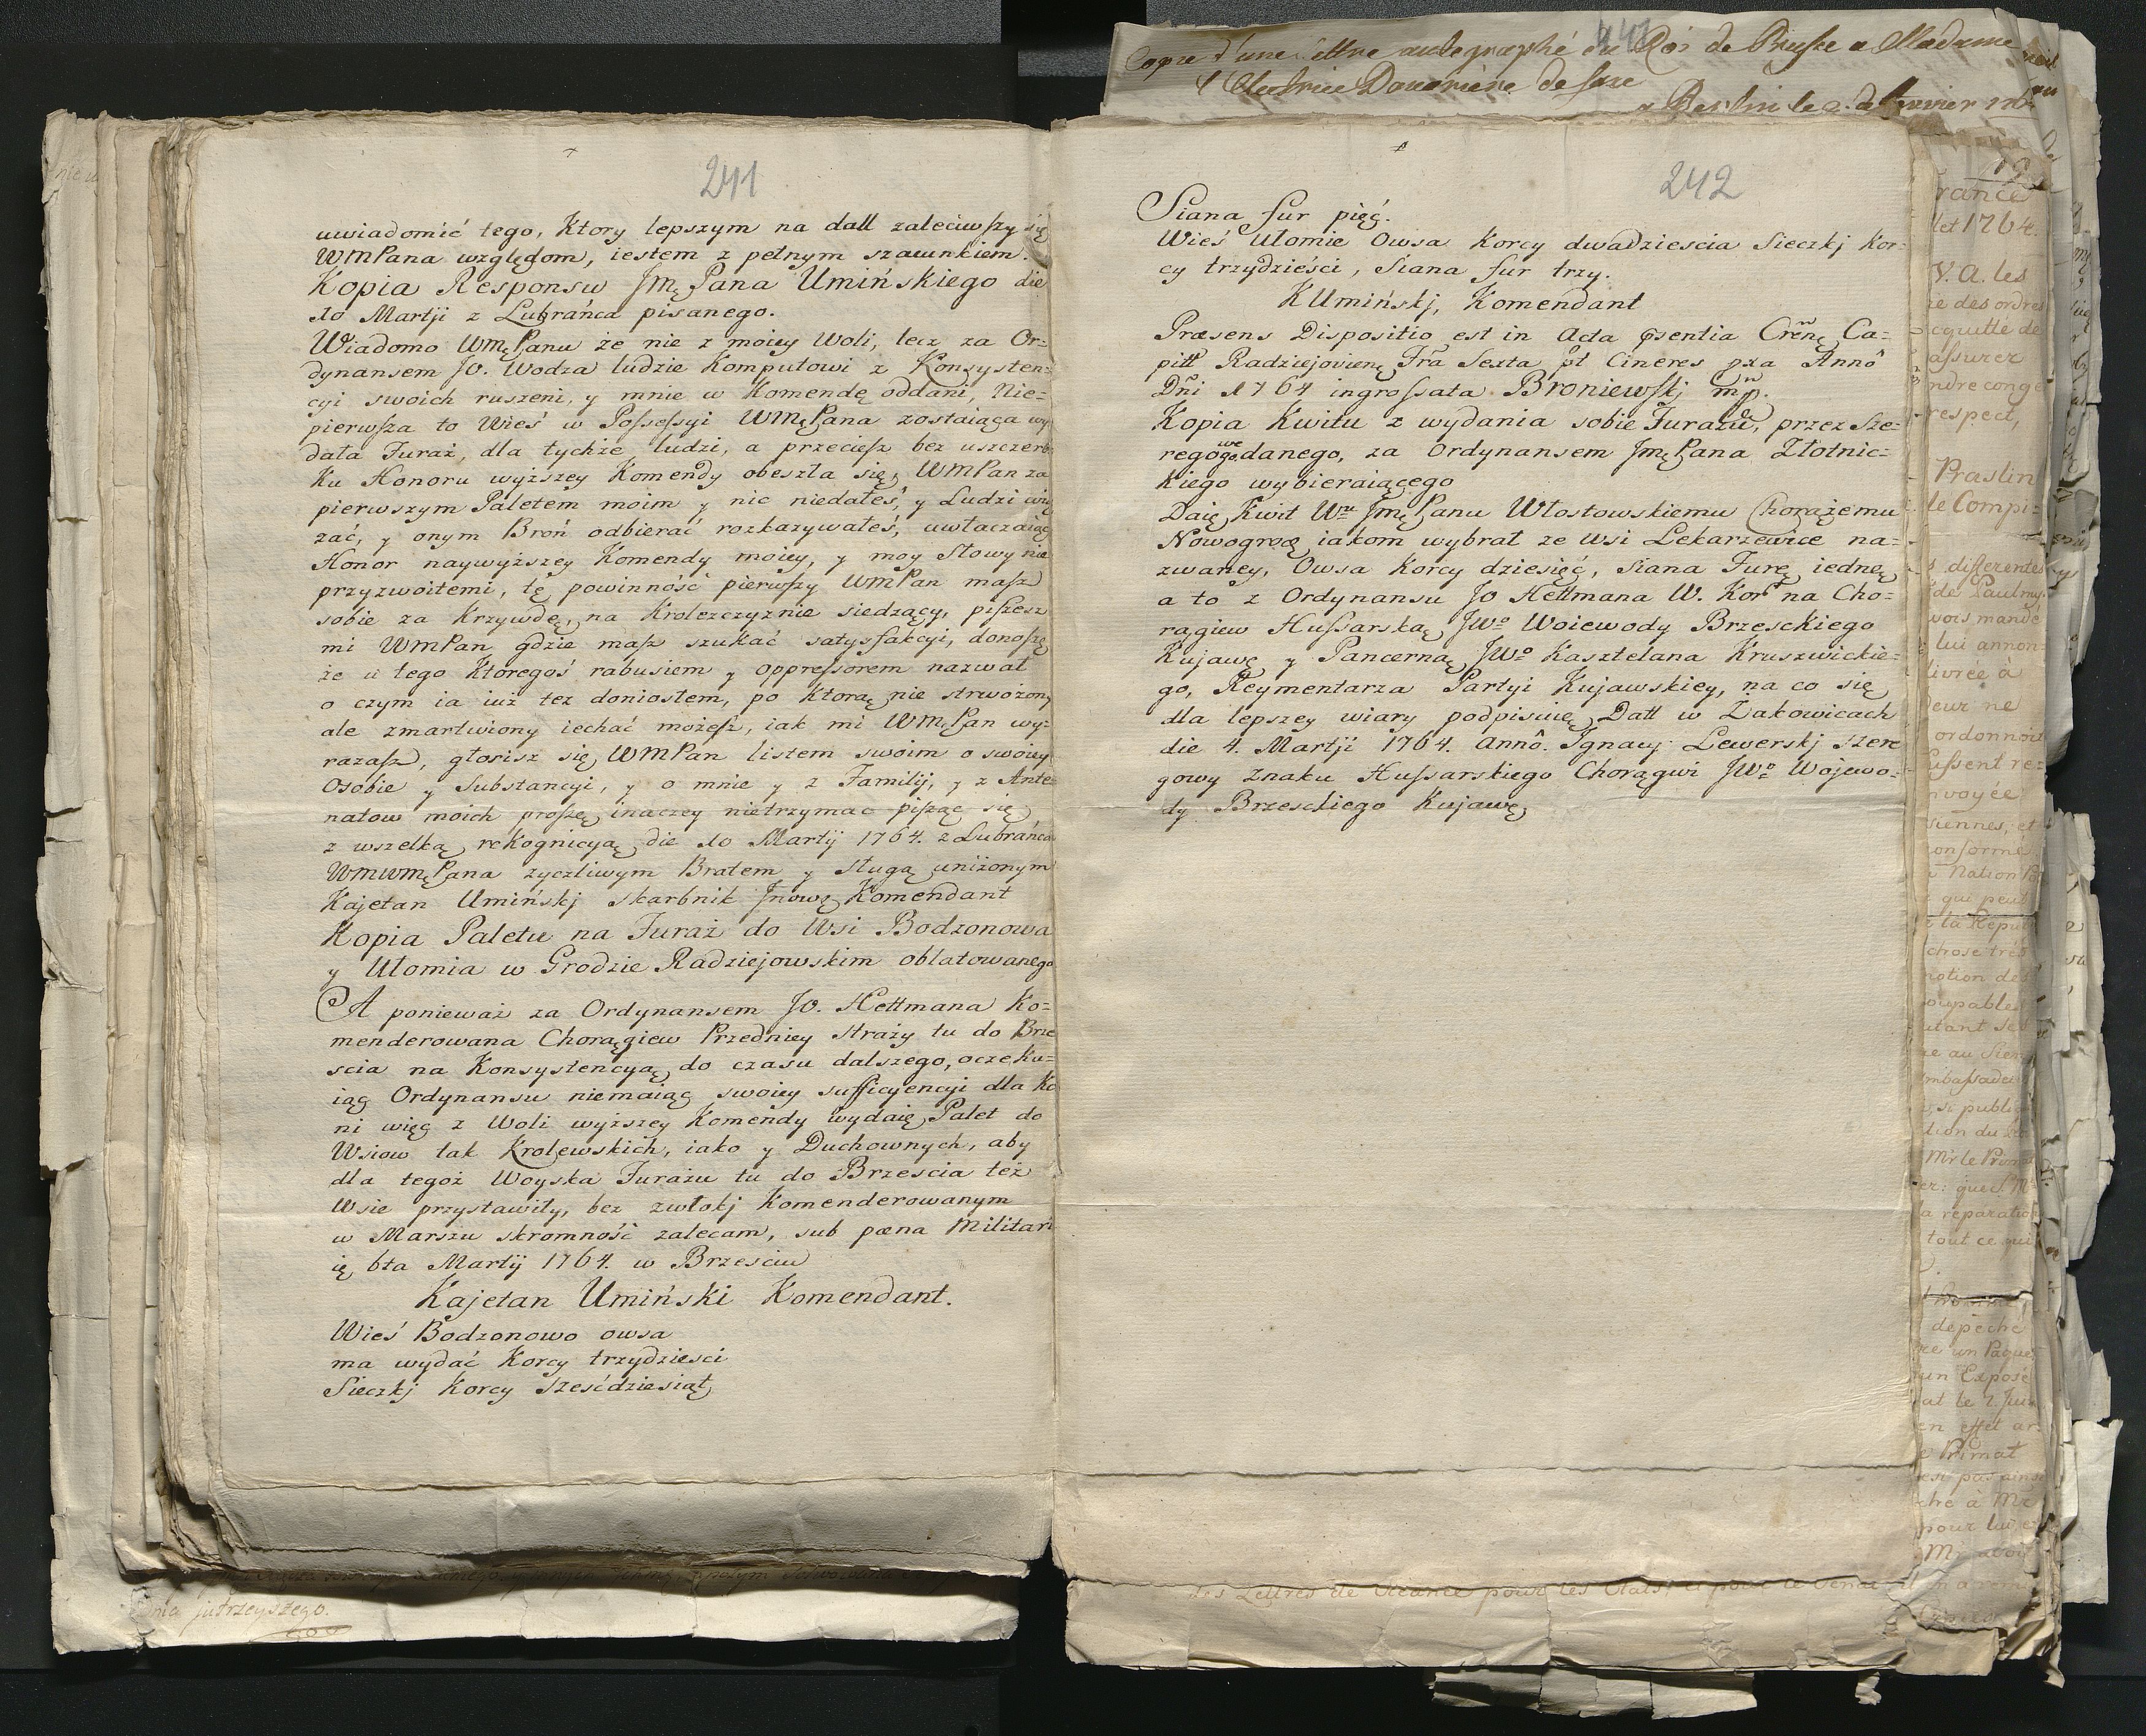 241
uwiadomić tego, Ktory lepszym na dall zaleciwszy się
WMPana względom, iestem z pełnym szacunkiem.
Kopia Responsu Jmę Pana Umińskiego die
10 Martji z Lubrańca pisanego.
Wiadomo WMę Panu że nie z moiey Woli, lecz za Or=
dynansem JO. Wodza ludzie Komputowi z Konsysten=
cyi swoich ruszeni, y mnie w Komendę oddani, Nie=
pierwsza to Wieś w Possessyi WMę Pana zostaiąca wy
dała Furaż, dla tychże ludzi, a przeciesz bez uszczerb
Ku Honoru wyższey Komendy obeszła się, WMPan za
pierwszym Paletem moim y nic niedałeś, y Ludzi wię
zać, y onym Broń odbierać rozkazywałeś, uwłaczaiąc
Honor naywyższey Komendy moiey, y moy Słowy nie
przyzwoitemi, tę powinność pierwszy WMPan masz
sobie za Krzywdę, na Krolczczyznie siedzący, piszesz
mi WMPan gdzie masz szukać satysfakcyi, donoszę
że u tego Ktoregoś rabusiem y oppressorem nazwał
o czym ia iuż tez doniosłem, po Ktorą nie strwożony
ale zmartwiony iechać możesz, iak mi WMę Pan wy=
razasz, głosisz się WMPan listem swoim o swoiey
Osobie y Substancyi, y o mnie y z Familij, y z Ante
natow moich proszę inaczey nietrzymac pisząc się
z wszelką rekognicyą die 10 Martij 1764. z Lubrańca
WMWMę Pana zyczliwym Bratem y sługą uniżonym
Kajetan Umińskj Skarbnik Jnowę Komendant
Kopia Paletu na Furaż do Wsi Bodzonowa
y Ułomia w Grodzie Radziejowskim oblatowanego
A ponieważ za Ordynansem JO. Hettmana Ko=
menderowana Chorągiew Przedniey Straży tu do Brze
scia na Konsystencyą do czasu dalszego, oczeku=
iąc Ordynansu niemaiąc swoiey sufficyencyi dla Ko
ni więc z Woli wyższey Komendy wydaię Palet do
Wsiow tak Krolewskich, iako y Duchownych, aby
dla tegoż Woyska Furażu tu do Brzescia też
Wsie przystawiły, bez zwłokj Komenderowanym
w Marszu skromność zalecam, sub pæna Militari
ię 6ta Martij 1764. w Brzesciu
Kajetan Umiński Komendant.
Wieś Bodzonowo owsa
ma wydać Korcy trzydziesci
Sieczkj Korcy sześćdziesiąt
242
Siana fur pięć.
Wieś Ułomie Owsa Korcy dwadziescia Sieczkj Kor=
cy trzydzieści, Siana fur trzy.
KUmińskj, Komendant
Præsens Dispositio est in Acta Crenę Ca=
pitt Radziejovienę Fra Sexta pt Cineres pxa Annô
Dni 1764 ingrossata Broniewskj mp.
Kopia Kwitu z wydania sobie Furażu, przez Sze=
regowego danego, za Ordynansem Jmę Pana Złotnic=
kiego wybieraiącego
Daię Kwit Wu Jmę Panu Włostowskiemu Chorążemu
Nowogroę iakom wybrał ze wsi Lekarzewice na=
zwaney, Owsa Korcy dziesięć, Siana Furę iednę
a to z Ordynansu JO Hettmana W. Kor na Cho=
rągiew Hussarską JWo Woiewody Brzesckiego
Kujawę y Pancerną JWo Kasztelana Kruszwickie=
go, Reymentarza Partyi Kujawskiey, na co się
dla lepszey wiary podpisuię Datt w Zakowicach
die 4. Martji 1764. Annô. Ignacy Lewerskj szere
gowy Znaku Hussarskiego Chorągwi JWo Wojewo=
dy Brzesckiego Kujawę
Copie d'une lettre autographé du Roi de Prusse a Madame
l'Electrice Douariere de Saxe
a Berlin le
rance
let 1764.
V. A. les
re des ordres
cquitté de
assurer
ndre congé
respect,
Praslin
le Compi=
s differentes
de Paulmy
vois mandé
lui annon
livrée à
eur ne
ordonnoit
ussent re=
nvoyée
siennes, et
conforme
Nation
qui peut
la Répu
chose très
notion des
oupables
utant
au
mbassade
si public
tion du
Mr le Prim
a réparation
tout ce qui
depeche
re un Paquet
un Exposé
at le 7. Juin
en effet ar
Primat
est pas ainsi
che à Mr
pour lui
Mr
Dnia jutrzeyszego.
les Lettres de Créance pour les Etats, et pour le Senat